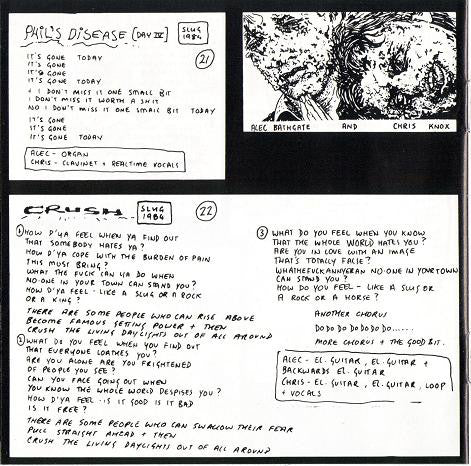 PHIL'S DISEASE (DAY IV)
SLUG 1984
21
IT'S GONE TODAY
IT'S GONE
IT'S GONE
IT'S GONE TODAY
+ I DON'T MISS IT ONE SMALL BIT
I DON'T MISS IT WORTH A SHIT
NO I DON'T MISS IT ONE SMALL BIT TODAY
IT'S GONE
IT'S GONE
IT'S GONE TODAY
ALEC - ORGAN
CHRIS - CLAVINET + REALTIME VOCALS
ALEC BATHGATE AND CHRIS KNOX
CRUSH
SLUG 1984
22
① HOW D'YA FEEL WHEN YA FIND OUT
THAT SOMEBODY HATES YA?
HOW D'YA COPE WITH THE BURDEN OF PAIN
THIS MUST BRING?
WHAT THE FUCK CAN YA DO WHEN
NO-ONE IN YOUR TOWN CAN STAND YOU?
HOW D'YA FEEL - LIKE A SLUG OR A ROCK
OR A KING?
THERE ARE SOME PEOPLE WHO CAN RISE ABOVE
BECOME FAMOUS GETTING POWER + THEN
CRUSH THE LIVING DAYLIGHTS OUT OF ALL AROUND
② WHAT DO YOU FEEL WHEN YOU FIND OUT
THAT EVERYONE LOATHES YOU?
ARE YOU ALONE ARE YOU FRIGHTENED
OF PEOPLE YOU SEE?
CAN YOU FACE GOING OUT WHEN
YOU KNOW THE WHOLE WORLD DESPISES YOU?
HOW D'YA FEEL - IS IT GOOD IS IT BAD
IS IT FREE?
THERE ARE SOME PEOPLE WHO CAN SWALLOW THEIR FEAR
PULL STRAIGHT AHEAD + THEN
CRUSH THE LIVING DAYLIGHTS OUT OF ALL AROUND
③ WHAT DO YOU FEEL WHEN YOU KNOW
THAT THE WHOLE WORLD HATES YOU?
ARE YOU IN LOVE WITH AN IMAGE
THAT'S TOTALLY FALSE?
WHATTHEFUCKANNYERAN NO-ONE IN YOUR TOWN
CAN STAND YOU?
HOW DO YOU FEEL - LIKE A SLUG OR
A ROCK OR A HORSE?
ANOTHER CHORUS
DO DO DO DO DO DO......
MORE CHORUS + THE GOOD BIT.
ALEC - EL. GUITAR, EL. GUITAR +
BACKWARDS EL. GUITAR
CHRIS - EL. GUITAR, EL. GUITAR, LOOP
+ VOCALS